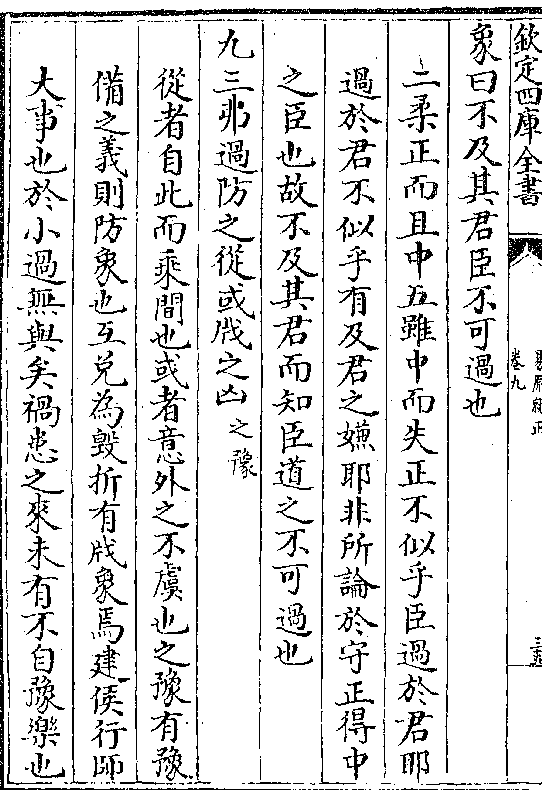 欽定四庫全書
卷九
象曰不及其君臣不可過也
二柔正而且中五雖中而失正不似乎臣過於君耶
過於君不似乎有及君之嫌耶非所論於守正得中
之臣也故不及其君而知臣道之不可過也
九三弗過防之從或戕之凶之豫
從者自此而乘間也或者意外之不虞也之豫有豫
備之義則防象也互兌為毀折有戕象焉建侯行師
大事也於小過無與矣禍患之來未有不自豫樂也